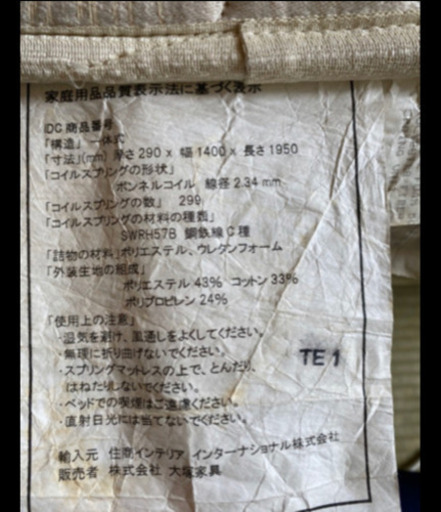 家庭用品品質表示法に基づく表示
IDC 商品番号
「構造」 一体式
「寸法」(mm) 厚さ290 x 幅1400 x 長さ1950
「コイルスプリングの形状」
ボンネルコイル 線径 2.34 mm
「コイルスプリングの数」 299
「コイルスプリングの材料の種類」
SWRH57B 鋼鉄線 C 種
「詰物の材料」ポリエステル、ウレタンフォーム
「外装生地の組成」
ポリエステル 43% コットン 33%
ポリプロピレン 24%
「使用上の注意」
・湿気を避け、風通しをよくしてください。
・無理に折り曲げないでください。
・スプリングマットレスの上で、とんだり、
はねたりしないでください。
・ベッドでの喫煙はご遠慮ください。
・直射日光には当てないでください。
TE 1
輸入元 住商インテリア インターナショナル株式会社
販売者 株式会社 大塚家具